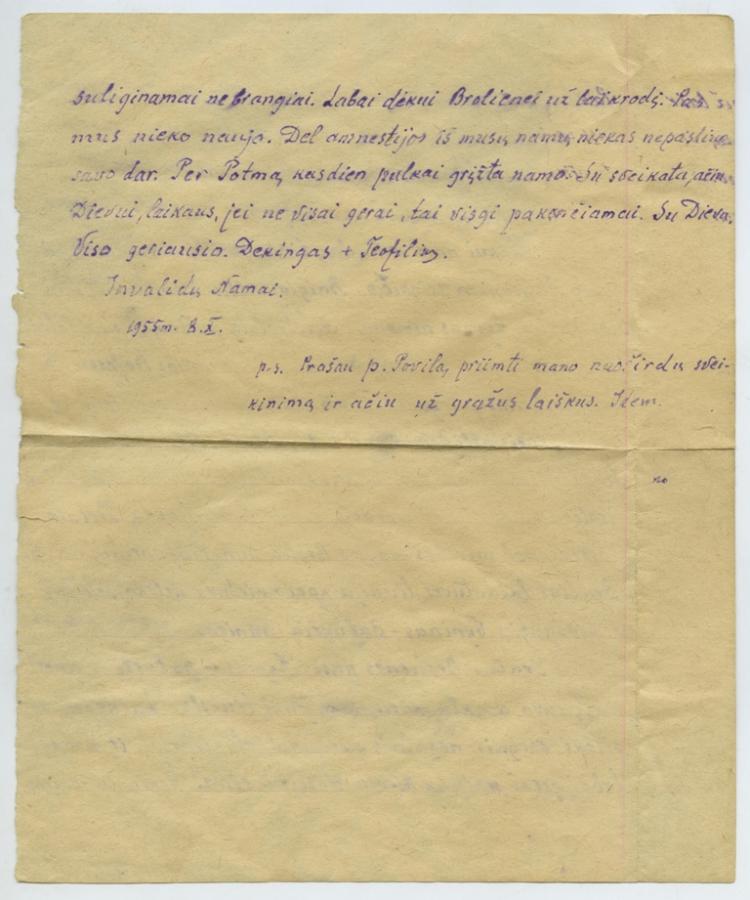 suliginamai nebrangiai. Labai dėkui Brolienei už laikrodį. Pas
mus nieko naujo. Del amnestijos iš musų namų niekas nepasiliuo-
savo dar. Per Potmą kasdien pulkai grįžta namo. Su sveikata, ačiu
Dievui, laikaus, jei ne visai gerai, tai visgi pakenčiamai. Su Dievu.
Viso geriausio. Dekingas + Teofilius.
Invalidų Namai.
1955m. 8. X.
p.s. Prašau p. Povilą, priimti mano nuoširdų svei-
kinimą ir ačiu už gražus laiškus. Idem.